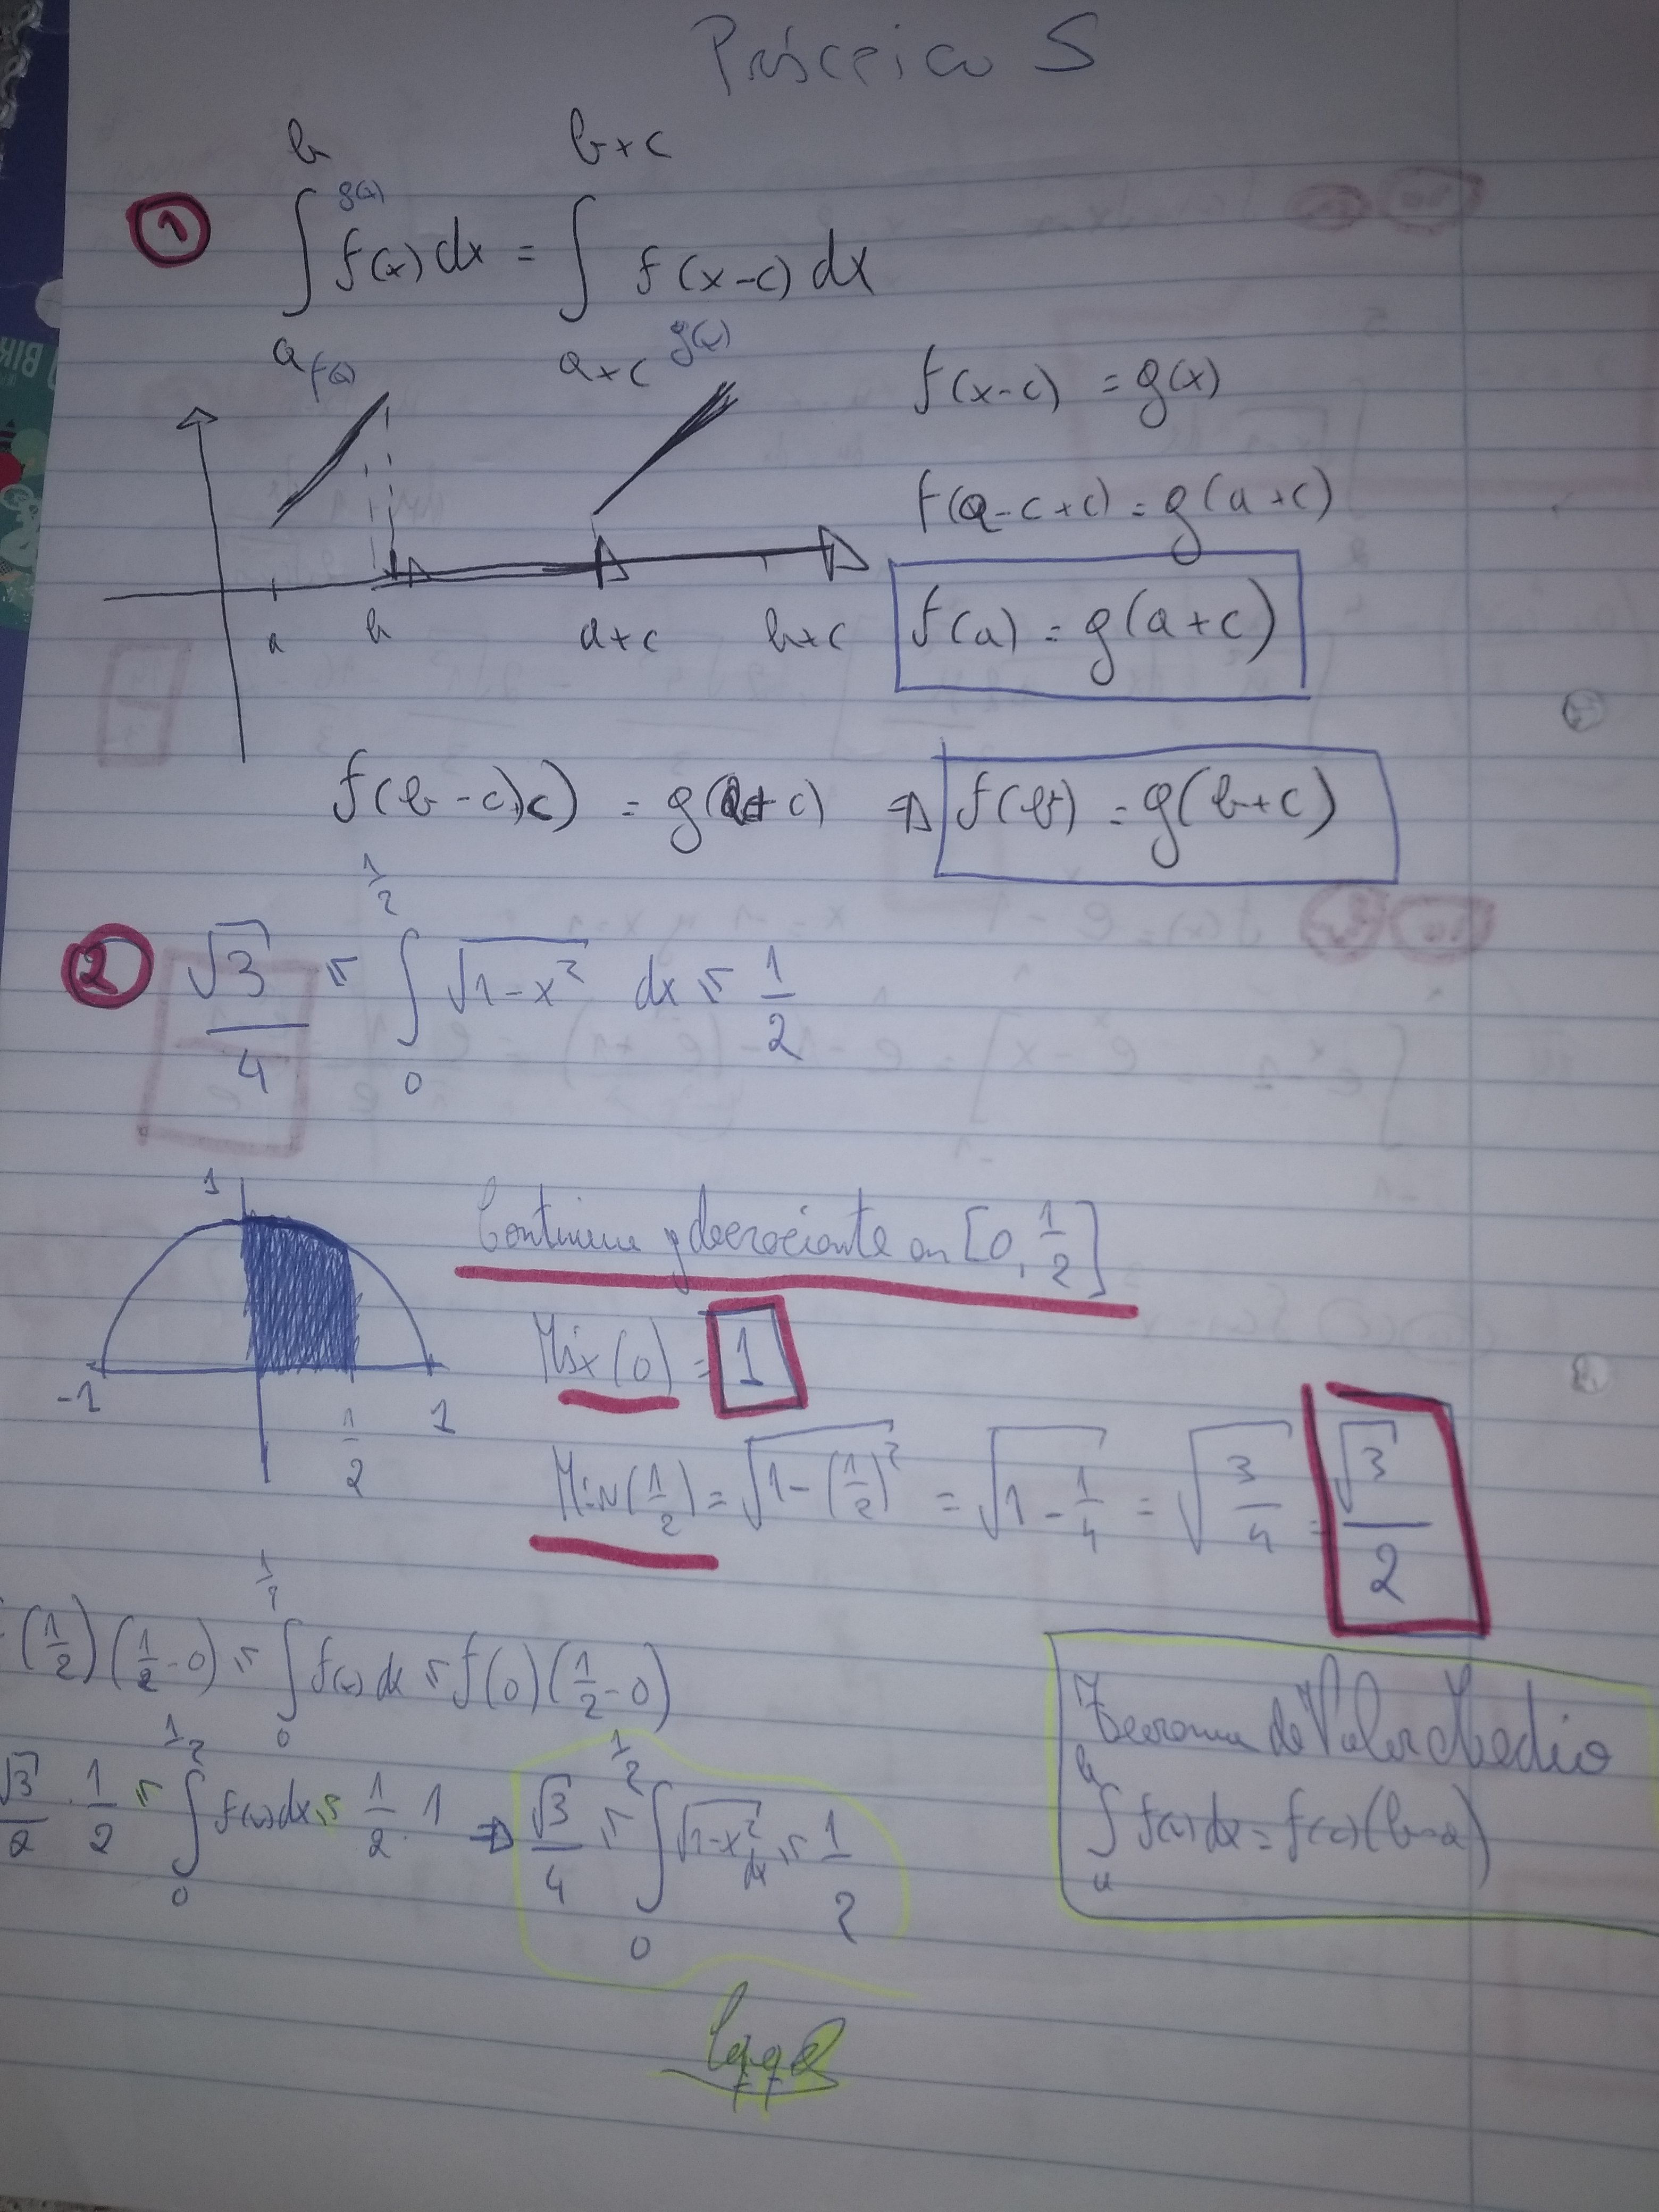 Práctico 5
① ∫ₐᵇ f(x) dx = ∫ₐ₊꜀ᵇ⁺ᶜ f(x-c) dx
g(x)
f(x) g(x)
f(x-c) = g(x)
f(a-c+c) = g(a+c)
f(a) = g(a+c)
a b a+c b+c
f(b-c+c) = g(b+c) ⇒ f(b) = g(b+c)
② √3/4 ≤ ∫₀^(1/2) √(1-x²) dx ≤ 1/2
1
-1 1/2 1
Continua y decreciente en [0, 1/2]
Máx(0) = 1
Mín(1/2) = √(1-(1/2)²) = √(1-1/4) = √(3/4) = √3/2
(1/2)(1/2-0) ≤ ∫₀^(1/2) f(x) dx ≤ f(0)(1/2-0)
√3/2 . 1/2 ≤ ∫₀^(1/2) f(x) dx ≤ 1/2 . 1 ⇒ √3/4 ≤ ∫₀^(1/2) √(1-x²) dx ≤ 1/2
Teorema de Valor Medio
∫ₐᵇ f(x) dx = f(c)(b-a)
lqqd